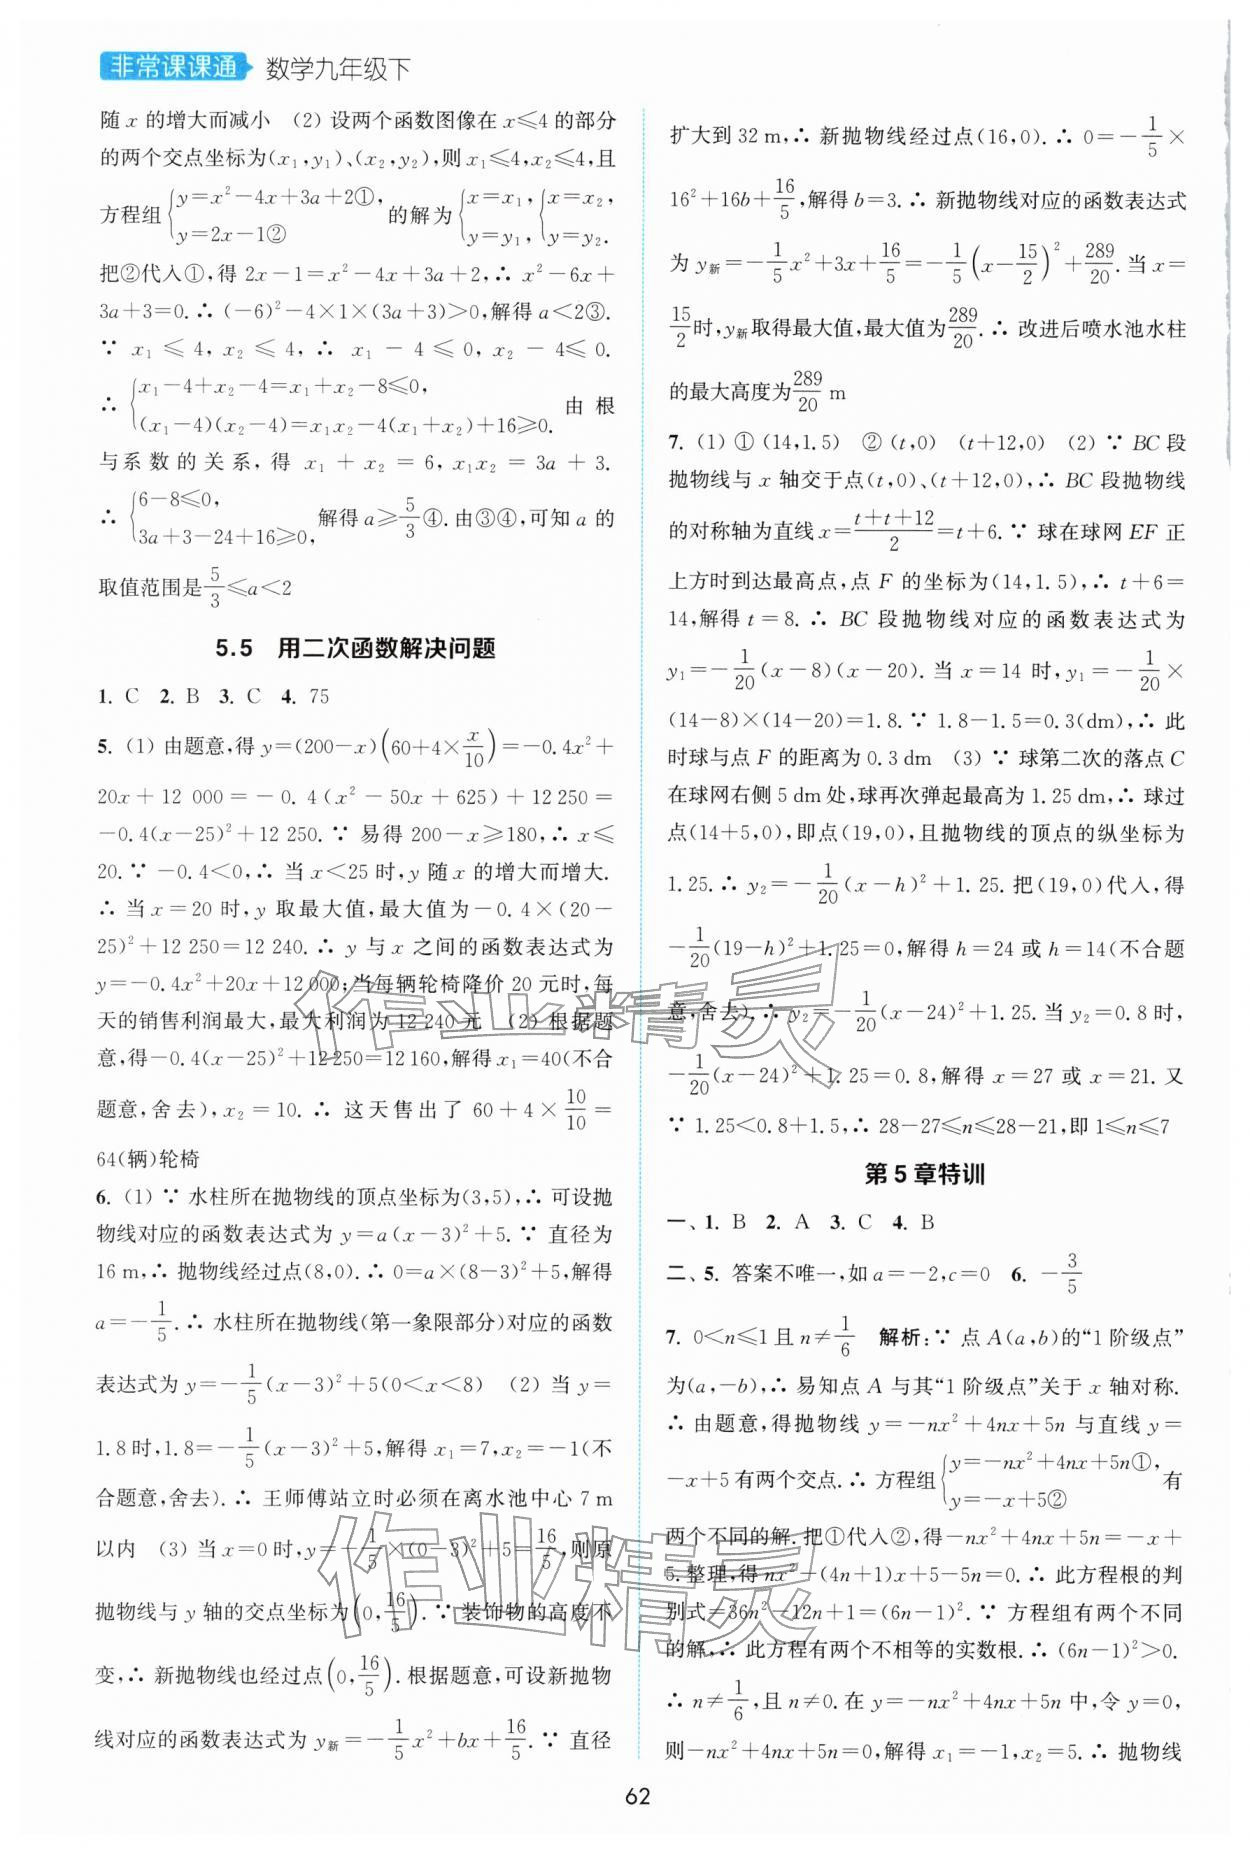 非常课课通 数学九年级下
随 x 的增大而减小 (2) 设两个函数图像在 x≤4 的部分
的两个交点坐标为(x₁,y₁)、(x₂,y₂),则 x₁≤4,x₂≤4,且
方程组{y=x²-4x+3a+2①, y=2x-1② 的解为{x=x₁, y=y₁,{x=x₂, y=y₂.
把②代入①,得 2x-1=x²-4x+3a+2,∴ x²-6x+
3a+3=0.∴ (-6)²-4×1×(3a+3)>0,解得 a<2③.
∵ x₁≤4, x₂≤4, ∴ x₁-4≤0, x₂-4≤0.
∴ {x₁-4+x₂-4=x₁+x₂-8≤0, (x₁-4)(x₂-4)=x₁x₂-4(x₁+x₂)+16≥0. 由根
与系数的关系,得 x₁+x₂=6,x₁x₂=3a+3.
∴ {6-8≤0, 3a+3-24+16≥0, 解得 a≥5/3④.由③④,可知 a 的
取值范围是5/3≤a<2
5.5 用二次函数解决问题
1. C 2. B 3. C 4. 75
5. (1) 由题意,得 y=(200-x)(60+4×x/10)=-0.4x²+
20x+12 000=-0.4(x²-50x+625)+12 250=
-0.4(x-25)²+12 250.∵ 易得 200-x≥180,∴ x≤
20.∵ -0.4<0,∴ 当 x<25 时,y 随 x 的增大而增大.
∴ 当 x=20 时,y 取最大值,最大值为-0.4×(20-
25)²+12 250=12 240.∴ y 与 x 之间的函数表达式为
y=-0.4x²+20x+12 000;当每辆轮椅降价 20 元时,每
天的销售利润最大,最大利润为 12 240 元 (2) 根据题
意,得-0.4(x-25)²+12 250=12 160,解得 x₁=40(不合
题意,舍去),x₂=10.∴ 这天售出了 60+4×10/10=
64(辆)轮椅
6. (1) ∵ 水柱所在抛物线的顶点坐标为(3,5),∴ 可设抛
物线对应的函数表达式为 y=a(x-3)²+5.∵ 直径为
16 m,∴ 抛物线经过点(8,0).∴ 0=a×(8-3)²+5,解得
a=-1/5.∴ 水柱所在抛物线(第一象限部分)对应的函数
表达式为 y=-1/5(x-3)²+5(0<x<8) (2) 当 y=
1.8时,1.8=-1/5(x-3)²+5,解得 x₁=7,x₂=-1(不
合题意,舍去).∴ 王师傅站立时必须在离水池中心 7 m
以内 (3) 当 x=0时,y=-1/5×(0-3)²+5=16/5,则原
抛物线与 y 轴的交点坐标为(0,16/5).∵ 装饰物的高度不
变,∴ 新抛物线也经过点(0,16/5).根据题意,可设新抛物
线对应的函数表达式为 y新=-1/5x²+bx+16/5.∵ 直径
扩大到 32 m,∴ 新抛物线经过点(16,0).∴ 0=-1/5×
16²+16b+16/5,解得 b=3.∴ 新抛物线对应的函数表达式
为 y新=-1/5x²+3x+16/5=-1/5(x-15/2)²+289/20.当 x=
15/2时,y新取得最大值,最大值为289/20.∴ 改进后喷水池水柱
的最大高度为289/20 m
7. (1) ① (14,1.5) ② (t,0) (t+12,0) (2) ∵ BC 段
抛物线与 x 轴交于点(t,0)、(t+12,0),∴ BC 段抛物线
的对称轴为直线 x=(t+t+12)/2=t+6.∵ 球在球网 EF 正
上方时到达最高点,点 F 的坐标为(14,1.5),∴ t+6=
14,解得 t=8.∴ BC 段抛物线对应的函数表达式为
y₁=-1/20(x-8)(x-20).当 x=14 时,y₁=-1/20×
(14-8)×(14-20)=1.8.∵ 1.8-1.5=0.3(dm),∴ 此
时球与点 F 的距离为 0.3 dm (3) ∵ 球第二次的落点 C
在球网右侧 5 dm 处,球再次弹起最高为 1.25 dm,∴ 球过
点(14+5,0),即点(19,0),且抛物线的顶点的纵坐标为
1.25.∴ y₂=-1/20(x-h)²+1.25.把(19,0)代入,得
-1/20(19-h)²+1.25=0,解得 h=24 或 h=14(不合题
意,舍去).∴ y₂=-1/20(x-24)²+1.25.当 y₂=0.8 时,
-1/20(x-24)²+1.25=0.8,解得 x=27 或 x=21.又
∵ 1.25<0.8+1.5,∴ 28-27≤n≤28-21,即 1≤n≤7
第 5 章特训
一、1. B 2. A 3. C 4. B
二、5. 答案不唯一,如 a=-2,c=0 6. -3/5
7. 0<n≤1 且 n≠1/6 解析:∵ 点 A(a,b)的“1 阶级点”
为(a,-b),∴ 易知点 A 与其“1 阶级点”关于 x 轴对称.
∴ 由题意,得抛物线 y=-nx²+4nx+5n 与直线 y=
-x+5 有两个交点.∴ 方程组{y=-nx²+4nx+5n①, y=-x+5② 有
两个不同的解.把①代入②,得-nx²+4nx+5n=-x+
5.整理,得 nx²-(4n+1)x+5-5n=0.∴ 此方程根的判
别式=36n²-12n+1=(6n-1)².∵ 方程组有两个不同
的解,∴ 此方程有两个不相等的实数根.∴ (6n-1)²>0.
∴ n≠1/6,且 n≠0.在 y=-nx²+4nx+5n 中,令 y=0,
则-nx²+4nx+5n=0,解得 x₁=-1,x₂=5.∴ 抛物线
62
作业精灵
作业精灵